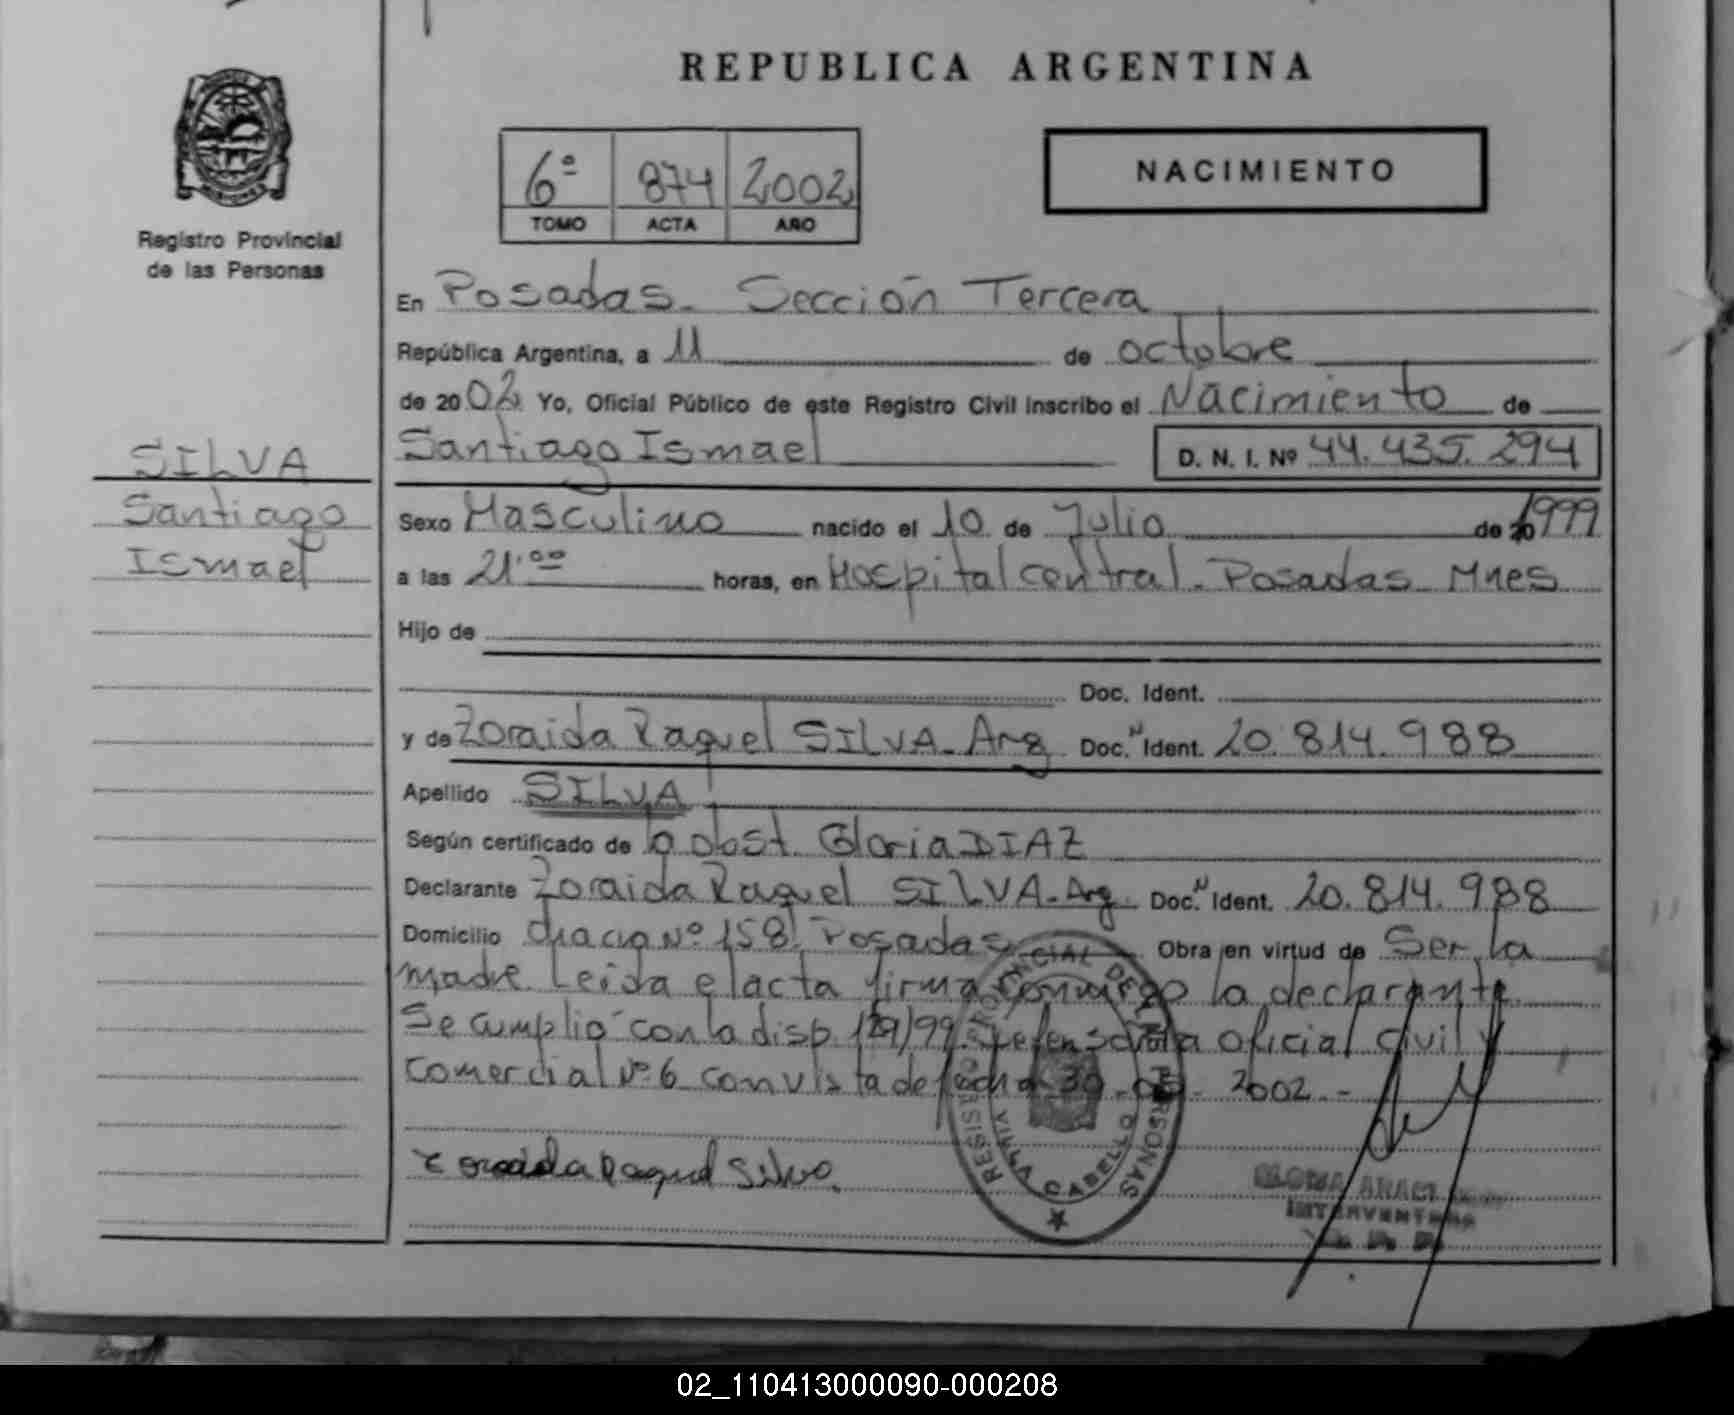 REPUBLICA ARGENTINA
6º 874 2002
TOMO ACTA AÑO
NACIMIENTO
Registro Provincial
de las Personas
En Posadas - Sección Tercera
República Argentina, a 11 de octubre
de 2002 Yo, Oficial Público de este Registro Civil inscribo el Nacimiento de
Santiago Ismael D. N. I. Nº 44.435.294
SILVA
Santiago
Ismael
Sexo Masculino nacido el 10 de Julio de 1999
a las 21.00 horas, en Hospital central - Posadas Mnes
Hijo de
Doc. Ident.
y de Zoraida Raquel SILVA - Arg Doc. N Ident. 20.814.988
Apellido SILVA
Según certificado de la obst. Gloria DIAZ
Declarante Zoraida Raquel SILVA - Arg. Doc. N Ident. 20.814.988
Domicilio chacra Nº 158. Posadas Obra en virtud de Ser la
madre Leida el acta firma conmigo la declarante
Se cumplio con la disp. /99. Defensoria oficial civil y
comercial Nº 6 con vista de fecha 2002.-
Zoraida Raquel Silva.
REGISTRO PROVINCIAL DE LAS PERSONAS
VILLA CABELLO
INTERVENTORA
02_110413000090-000208